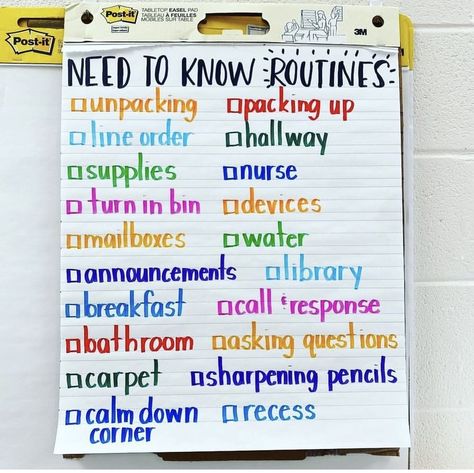 Post-it
Post-it
TABLETOP EASEL PAD
TABLEAU À FEUILLES
MOBILES SUR TABLE
3M
NEED TO KNOW ROUTINE'S
unpacking packing up
line order hallway
supplies nurse
turn in bin devices
mailboxes water
announcements library
breakfast call & response
bathroom asking questions
carpet sharpening pencils
calm down recess
corner